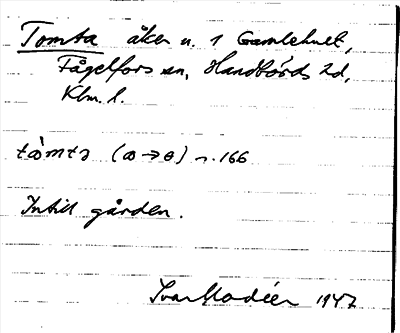 Tomta åker n. 1 Gamlehult,
Fågelfors sn, Handbörds hd,
Klm. l.
tòmta (ɷ→ɵ) ~. 166
Intill gården.
Ivar Modéer 1947